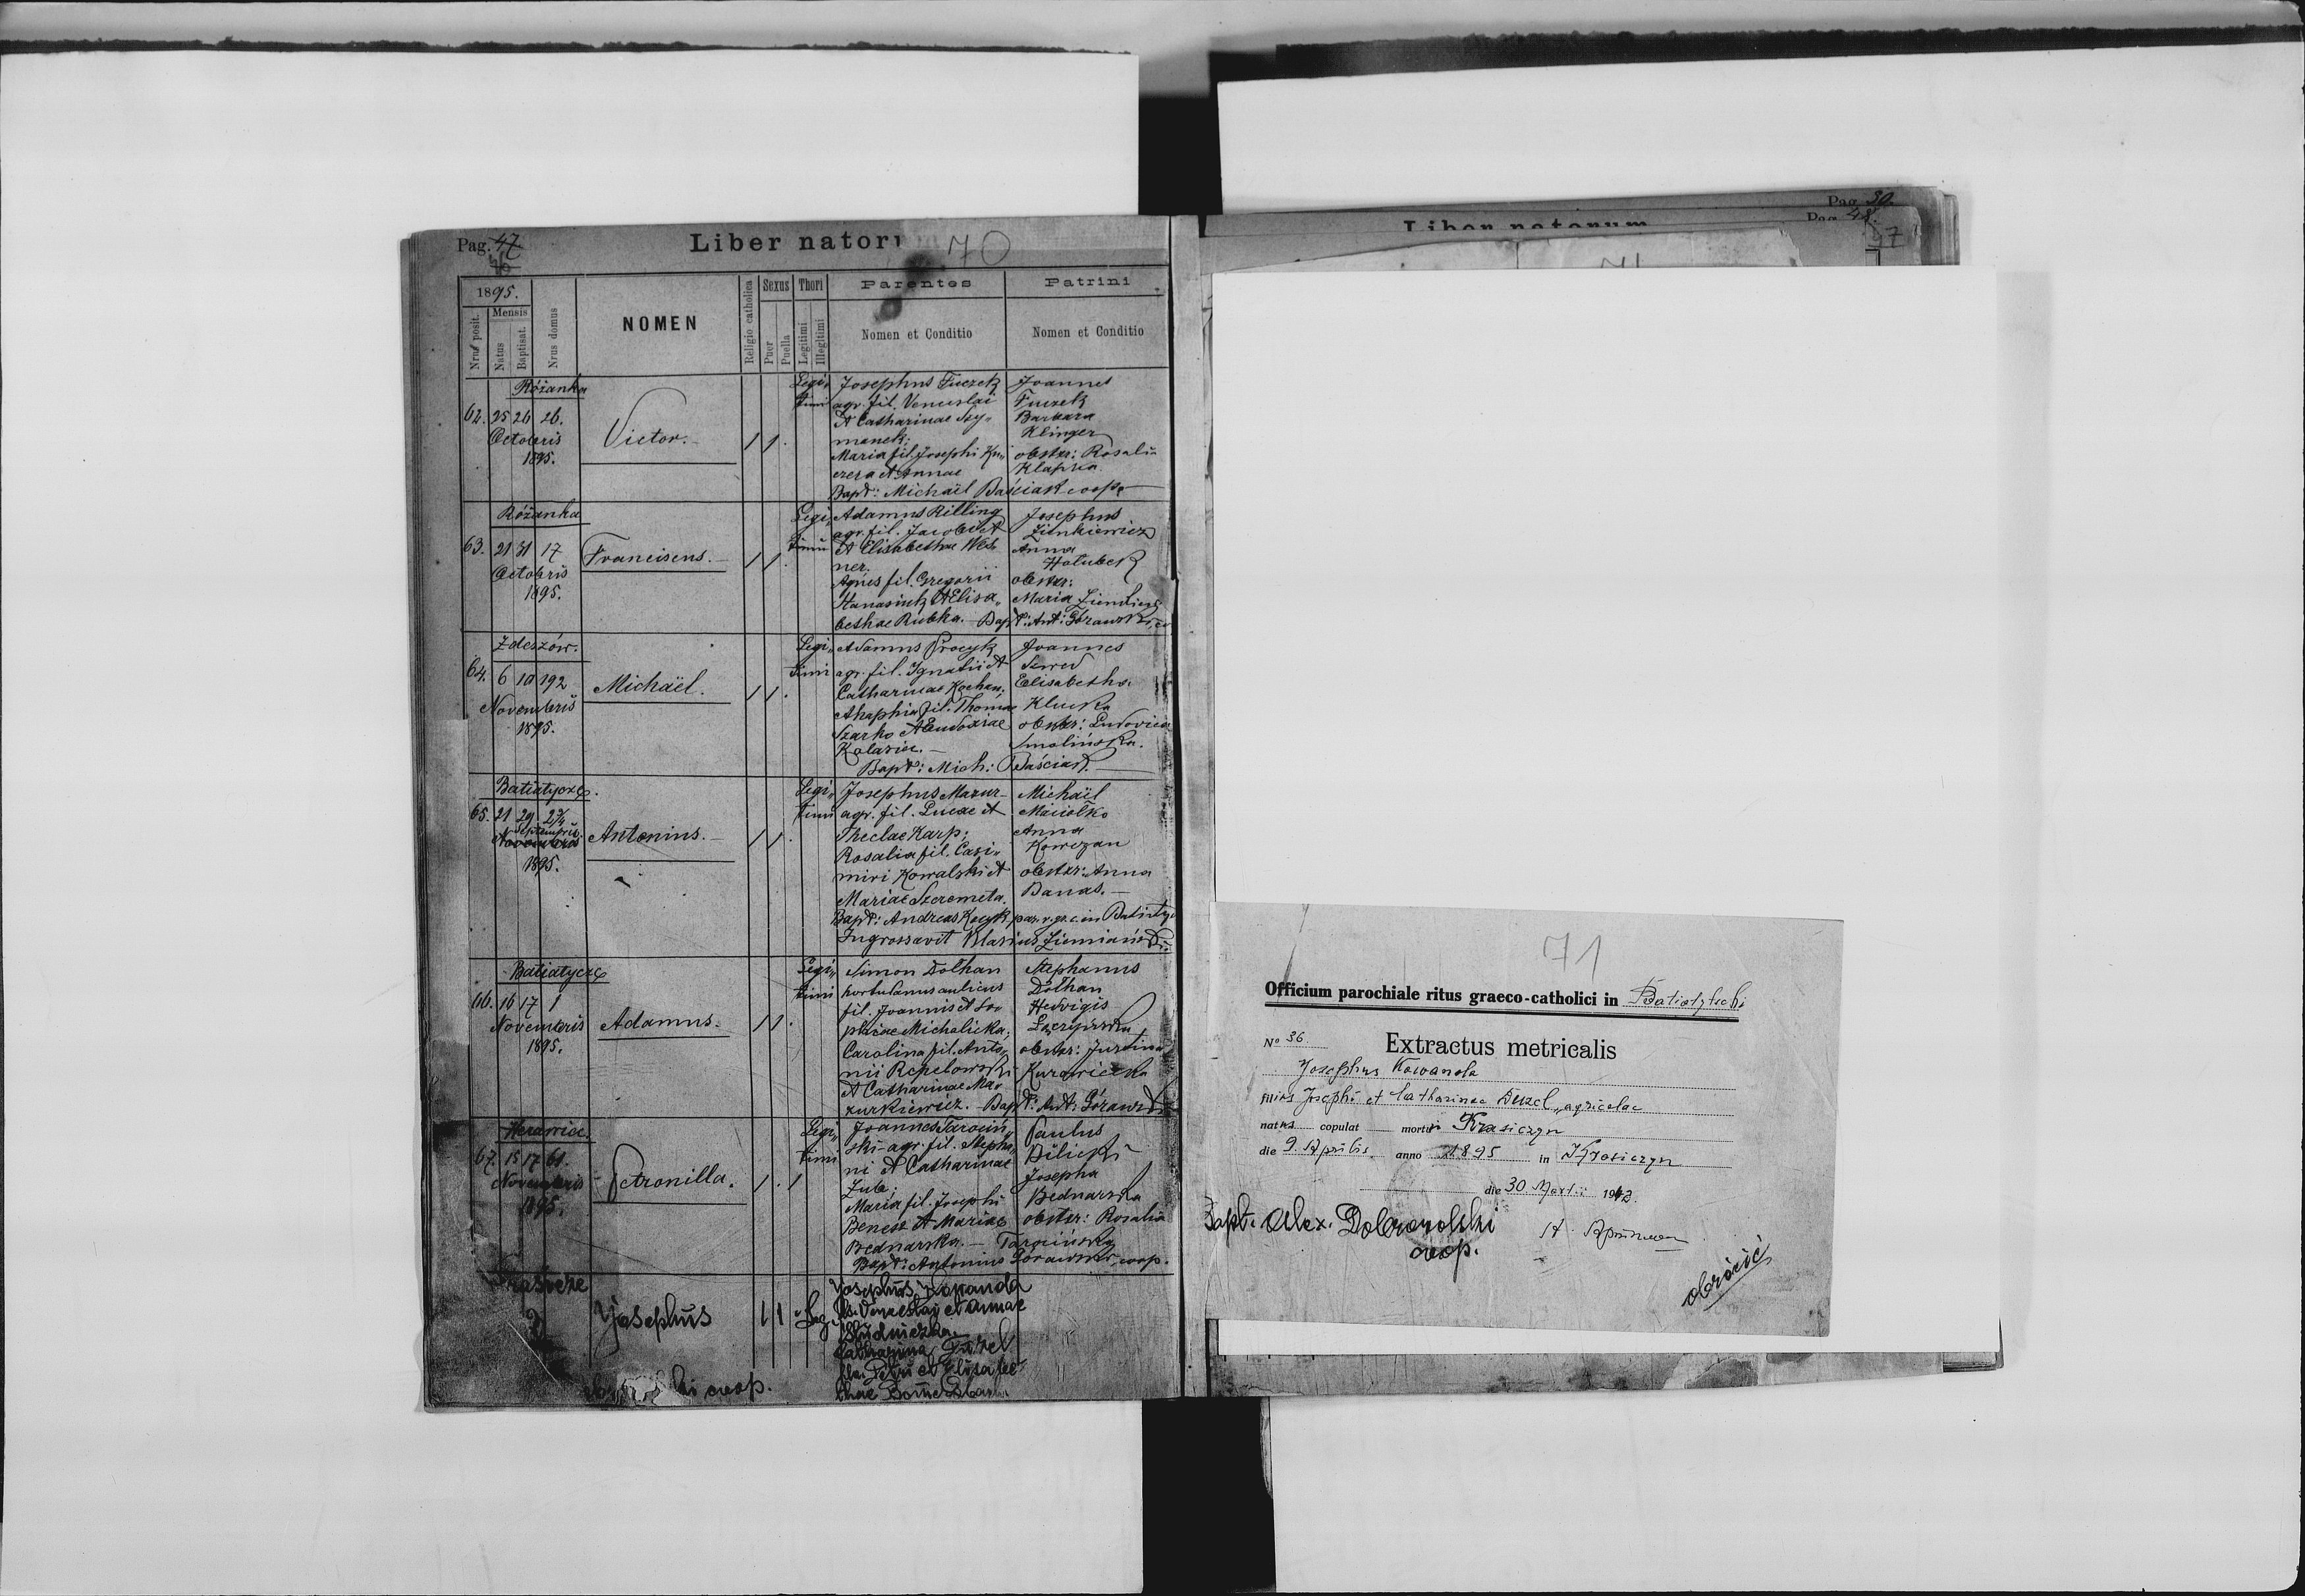 Pag. 47
Liber natoru
70
1895.
Nrus posit.
Mensis
Natus
Baptisat.
Nrus domus
NOMEN
Religio catholica
Sexus
Puer
Puella
Thori
Legitimi
Illegitimi
Parentes
Nomen et Conditio
Patrini
Nomen et Conditio
Różanka
62. 25 26 26.
Octobris
1895.
Victor.
1 1 .
Legi„
timi
Josephus Fuczek
agr. fil. Venceslai
et Catharinae Szy„
manek;
Maria fil. Josephi
et Annae
Bapt: Michaël Baściak coop.
Joannes
Fuczek
Barbara
Klinger
obstetr: Rosalia
Klapka
Różanka
63. 21 31 17
Octobris
1895.
Franciscus.
1 1 .
Legi„
timi
Adamus Rilling
agr. fil. Jacobi et
et Elisabethae Wes
ner.
Agnes fil. Gregorii
Hanasiuk et Elisa„
bethae Rubka. Bapt: Ant: Górawski, co
Josephus
Zienkiewicz
Anna
Holubek
obstetr:
Maria
Zdeszów.
64. 6 10 192
Novembris
1895.
Michaël.
1 1 .
Legi„
timi
Adamus Procyk
agr. fil. Ignatii et
Catharinae Kochan,
Ahaphia fil. Thomae
Szarko et Eudoxiae
Kalasia.
Bapt: Mich: Baściak.
Joannes
Szwed
Elisabetha
Kluska
obstetr: Ludovica
Smolińska.
Batiatycze.
65. 21 29 274
Septembris
Novembris
1895.
Antonius.
1 1 .
Legi„
timi
Josephus Mazur
agr. fil. Lucae et
Theclae Karp;
Rosalia fil. Casi„
miri Kowalski et
Mariae Szeremeta.
Bapt: Andreas Kocyk par. r. gr. c. in Batiatycz
Ingrossavit Blasius Ziemiański
Michaël
Maciołko
Anna
Kowczan
obstetr: Anna
Banas.
Batiatycze
66. 16 17 1
Novembris
1895.
Adamus.
1 1 .
Legi„
timi
Simon Dołhan
hortulanus aulicus
fil. Joannis et So„
phiae Michalicka;
Carolina fil. Anto„
nii Repelowski
et Catharinae Ma„
zurkiewicz. Bapt: Ant: Górawski
Stephanus
Dołhan
Hedvigis
obstetr: Justina
Kurawicka
67. 15 17 61.
Novembris
1895.
Petronilla.
1 . 1
Legi„
timi
Joannes Tarocin„
ski agr. fil. Stepha„
ni et Catharinae
Zub;
Maria fil. Josephi
Benesz et Mariae
Bednarska.
Bapt: Antonius Górawski, coop.
Paulus
Bilicki
Josepha
Bednarska
obstetr: Rosalia
Tarocińska
Josephus
1 1
Leg.
Josephus
fil. Venceslai et Annae
Studniczka
Catharina
fil. Petri et Elisabe
thae
coop.
Pag. 30.
Liber natorum
Pag. 48.
47
71
Officium parochiale ritus graeco-catholici in Batiatychi
No 36
Extractus metricalis
Josephus Kowanda
filius Josephi et Catharinae Duzel „agricolae
natus copulat mortu Krasiczyn
die 9. Aprilis anno 1895 in Krasiczyn
die 30 Martii 1942.
Bapt. Alex. Dobrowolski
coop.
obrócić